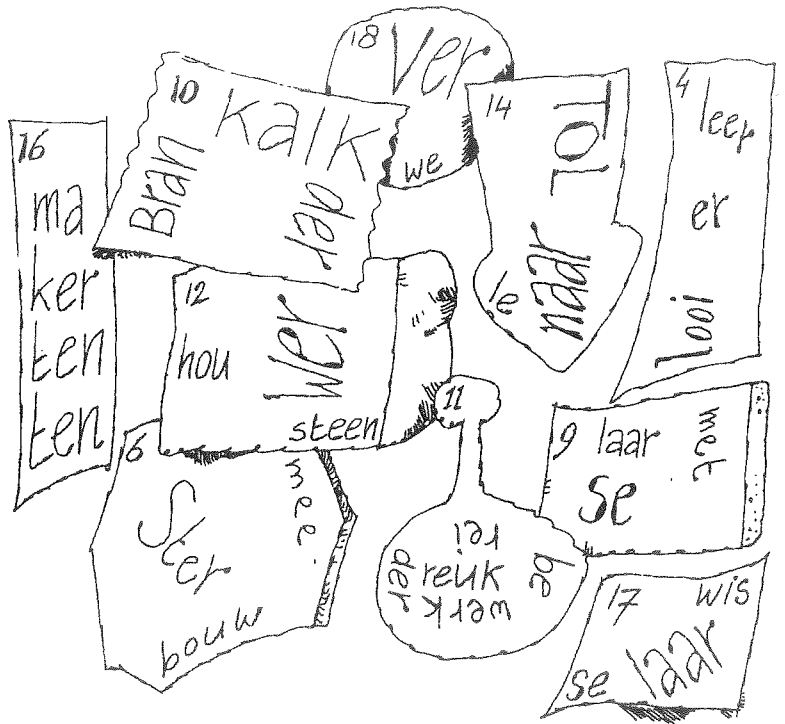 18 Ver
we
10 Kalk
Bran
der
14 TOL
naar
le
4 leer
er
looi
16
ma
ker
ten
ten
12
hou
Wer
steen
11
rei
reuk
be
der
werk
9 laar
met
se
6
mee
Ster
bouw
17 wis
se laar